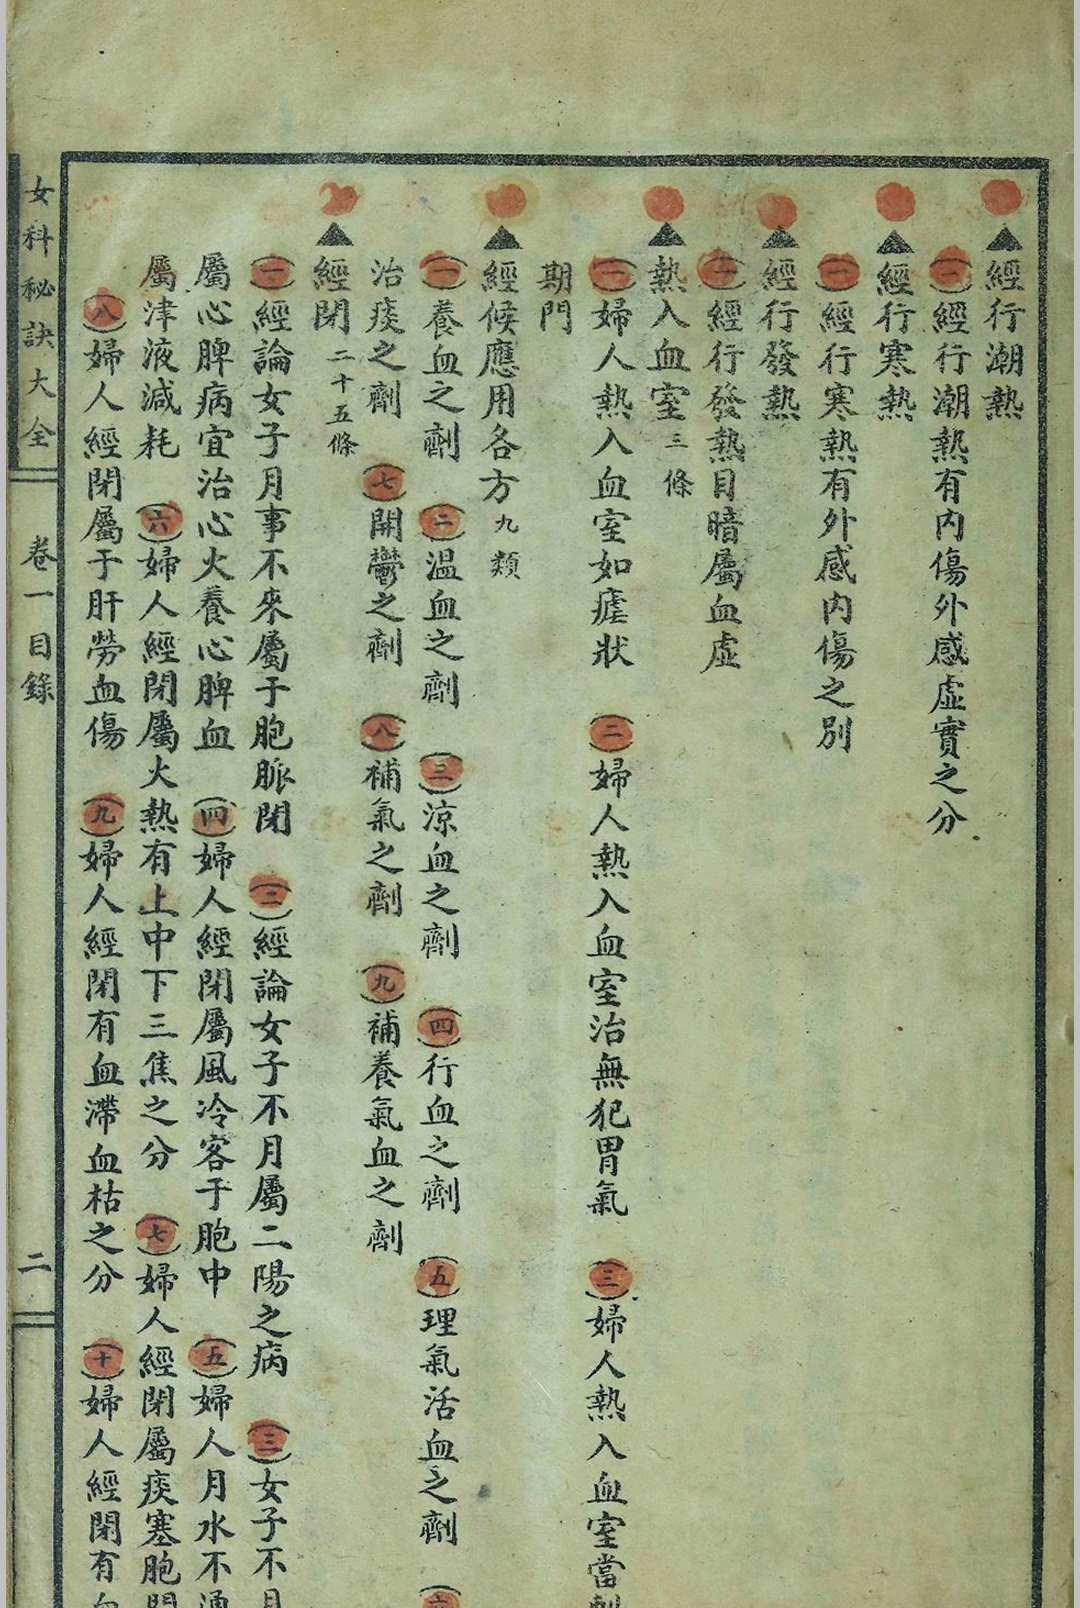 ▲經行潮熱
(一)經行潮熱有內傷外感虛實之分
▲經行寒熱
(一)經行寒熱有外感內傷之別
▲經行發熱
(一)經行發熱目暗屬血虛
▲熱入血室三條
(一)婦人熱入血室如瘧狀 (二)婦人熱入血室治無犯胃氣 (三)婦人熱入血室當刺
期門
▲經候應用各方九類
(一)養血之劑 (二)溫血之劑 (三)涼血之劑 (四)行血之劑 (五)理氣活血之劑 (六)
治痰之劑 (七)開鬱之劑 (八)補氣之劑 (九)補養氣血之劑
▲經閉二十五條
(一)經論女子月事不來屬于胞脈閉 (二)經論女子不月屬二陽之病 (三)女子不月
屬心脾病宜治心火養心脾血 (四)婦人經閉屬風冷客于胞中 (五)婦人月水不通
屬津液減耗 (六)婦人經閉屬火熱有上中下三焦之分 (七)婦人經閉屬痰塞胞門
(八)婦人經閉屬于肝勞血傷 (九)婦人經閉有血滯血枯之分 (十)婦人經閉有血
女科秘訣大全 卷一目錄 二